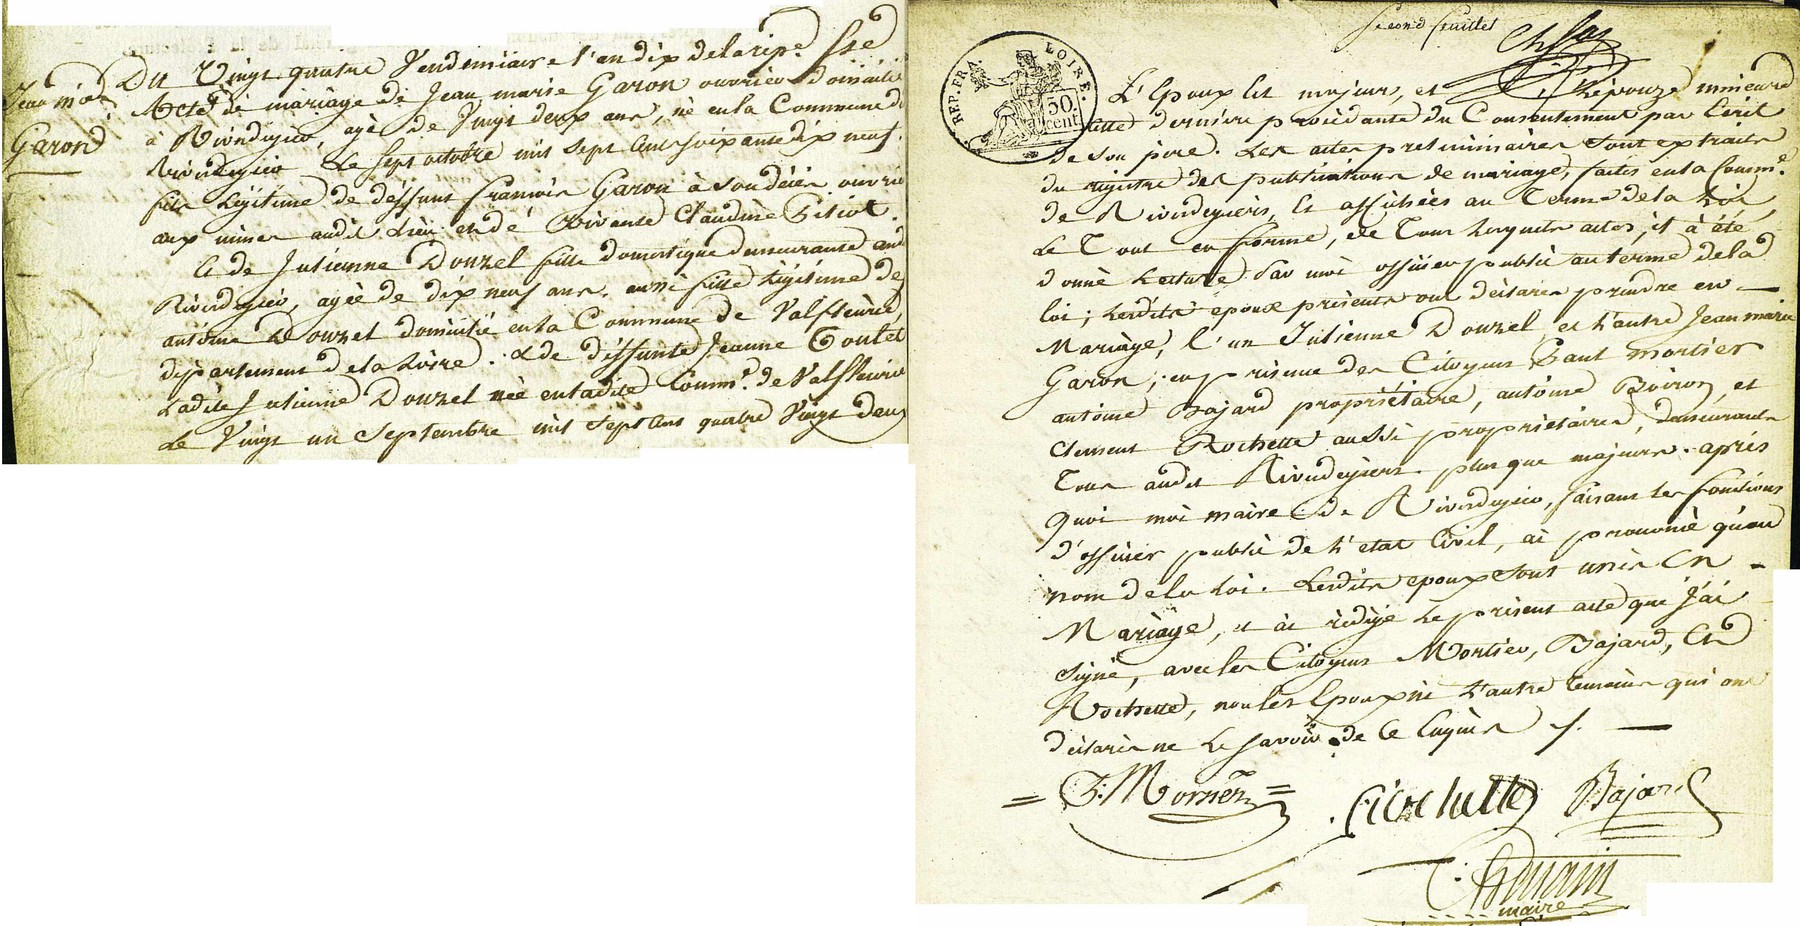 Jean m.ie
Garond
Du Vingt quatre Vendemiaire l'an dix de la rép.e fse
Acte de mariage de Jean marie Garon ouvrier domicilié
à Rivedegier, agé de Vingt deux ans, né en la Commune de
Rivedegier le sept octobre mil sept Cent soixante dix neuf.
fils Légitime de deffunt francois Garon à son décès ouvrier
aux mines audit Lieu et de vivante Claudine
Et de Julienne Douzel fille domestique demeurante audit
Rivedegier, agée de dix neuf ans, aussi fille Légitime de
antoine Douzel domicilié en la Commune de Valfleurie,
département de la Loire. & de deffunte Jeanne Toulet
Ladite Julienne Douzel née en ladite Comm.e de Valfleurie
Le Vingt un Septembre mil sept Cent quatre Vingt deux
second feuillet
REP. FRA. LOIRE.
50
cent.
L'Epoux est majeur, et L'épouze mineure
cette derniere procédante du Consentement par Ecrit
de son pere. Les actes preliminaires sont extraits
du registre des publications de mariage, faites en la Comm.e
de Rivedegiers, et affichées au Terme de la Loi,
Le Tout en forme, de Tous lesquels actes, il à été
donné Lecture par moi officier public au terme de la
loi; Lesdits epoux présents ont déclarés prendre en
Mariage, l'un Julienne Douzel et L'autre Jean marie
Garon; en présence des Citoyens Paul mortier
antoine Bajard propriétaire, antoine Boiron, et
Clement Rochette aussi propriétaires, demeurants
Tous audit Rivedegiers plus que majeurs. après
Quoi moi maire de Rivedegier, faisant les fonctions
d'officier public de L'etat Civil, ai prononcé qu'au
nom de la Loi. Lesdits epoux sont unis En
Mariage, et ai rédigé le présent acte que J'ai
Signé, avec les Citoyens Mortier, Bajard, Et
Rochette, non les Epoux ni L'autre temoin qui ont
déclarés ne le savoir de Ce Enquis /.
= Mortier =
Rochette Bajard
maire